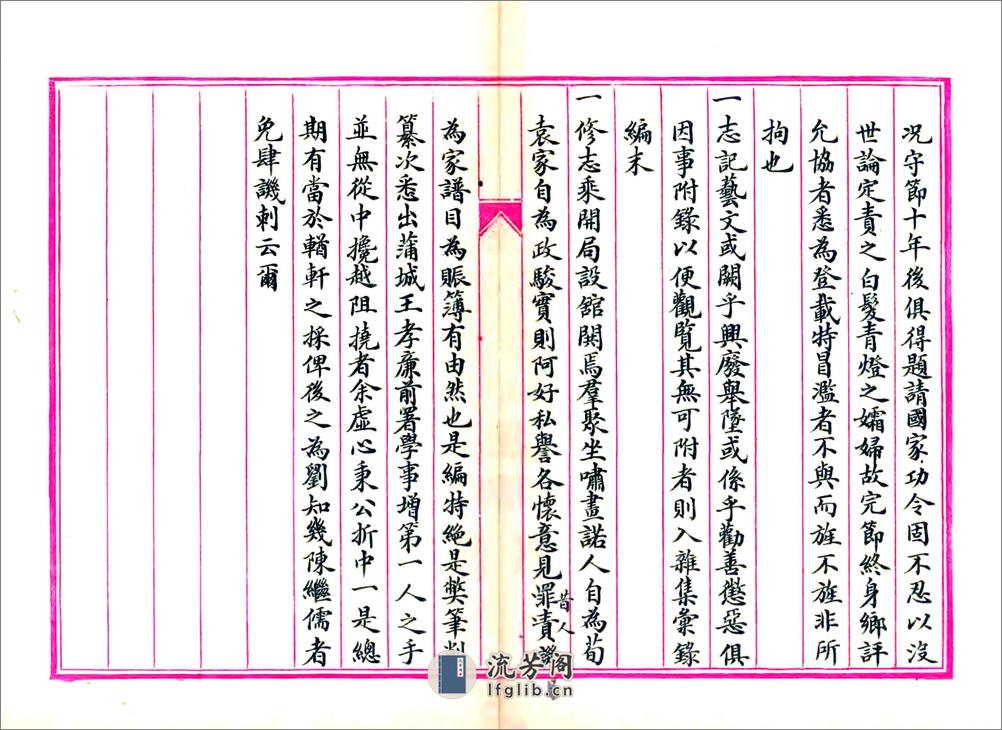 况守節十年後俱得題請國家功令固不忍以沒
世論定責之白髮青燈之孀婦故完節終身鄉評
允協者悉為登載特冒濫者不與而旌不旌非所
拘也
一志記藝文或關乎興廢舉墜或係乎勸善懲惡俱
因事附錄以便觀覽其無可附者則入雜集彙錄
編末
一修志乘開局設舘閧焉羣聚坐嘯畫諾人自為荀
袁家自為政駿實則阿好私譽各懷意見罪責
昔人
為家譜目為賬簿有由然也是編特絶是獘筆削
纂次悉出蒲城王孝亷前署學事增第一人之手
並無從中攙越阻撓者余虛心秉公折中一是總
期有當於輶軒之採俾後之為劉知幾陳繼儒者
免肆譏刺云爾
流芳阁
lfglib.cn